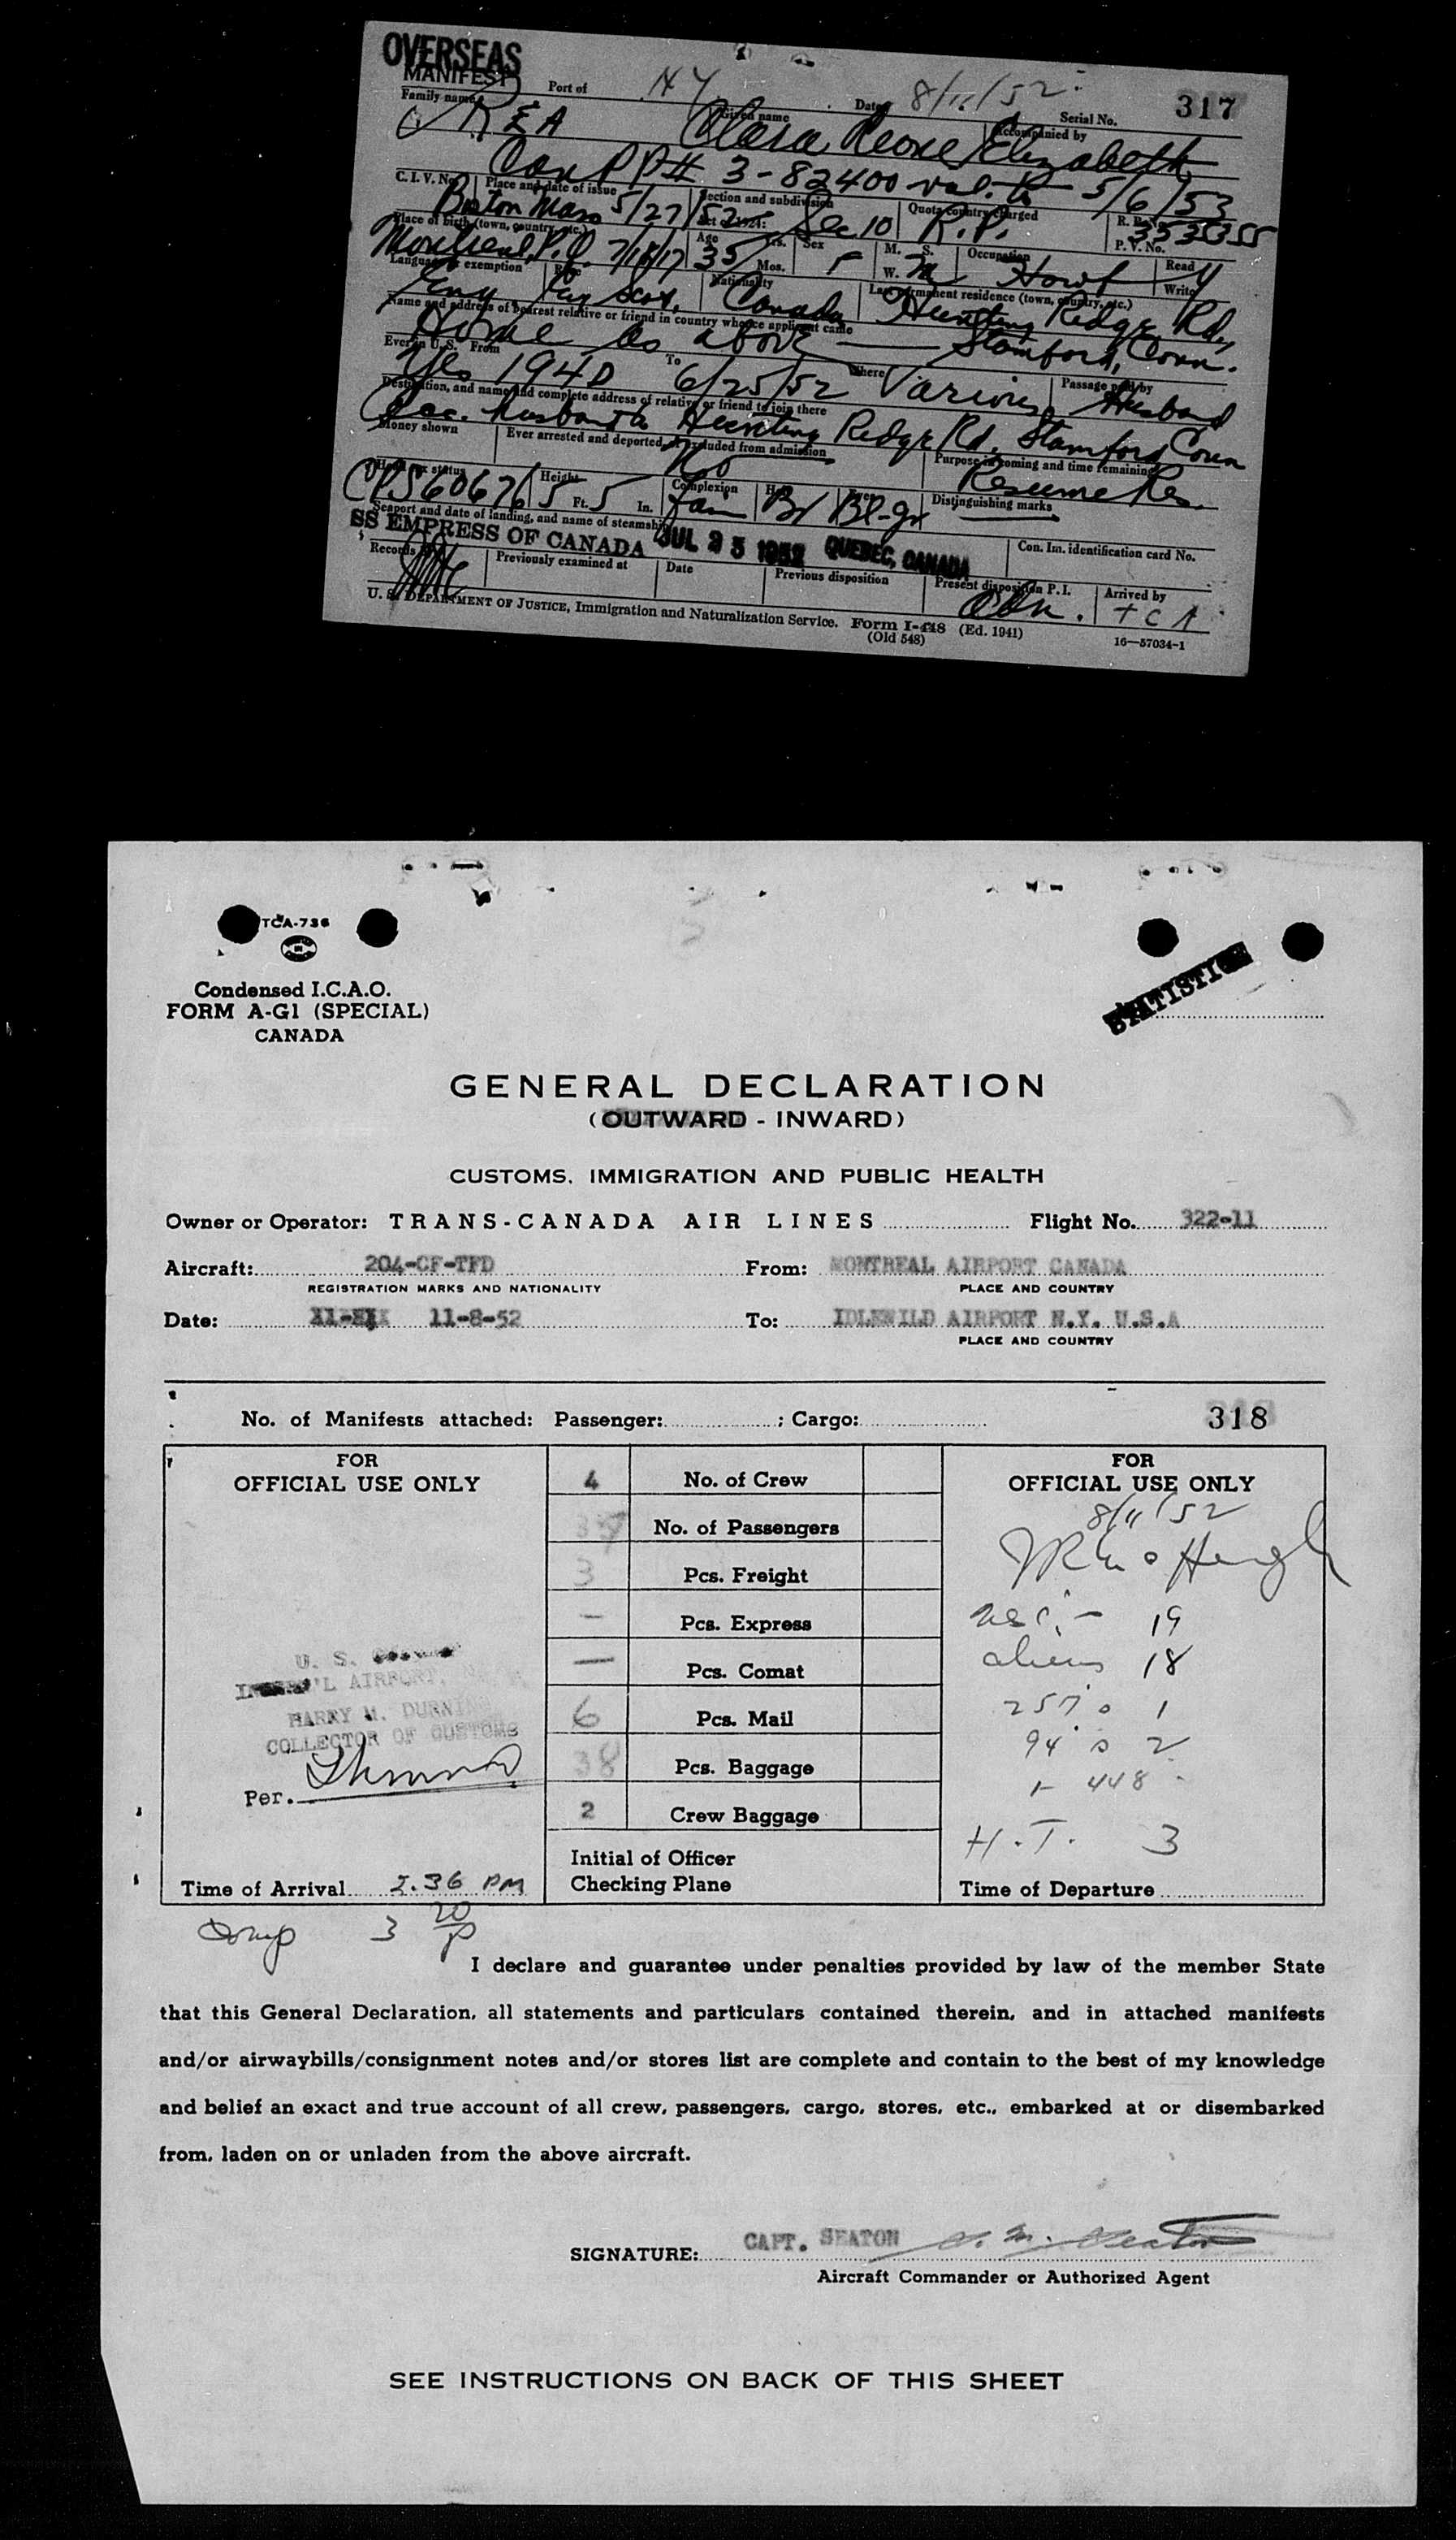 OVERSEAS
MANIFEST Port of N Y Date 8/11/52 Serial No. 317
Family name Given name Accompanied by
REA Clara Leone Elizabeth
Can PP# 3-82400 val. to 5/6/53
C. I. V. No. Place and date of issue Section and subdivision Quota country charged R. P.
Boston Mass 5/27/52 Act of 1924: Sec. 10 R.P. 3535355
Place of birth (town, country, etc.) Age Yrs. Sex M. S. Occupation P. V. No. Read
Montreal, P.Q. 7/18/17 35 Mos. F W. M Howf Write y
Language or exemption Race Nationality Last permanent residence (town, country, etc.)
Eng Scot. Canada Hunting Ridge Rd,
Name and address of nearest relative or friend in country whence applicant came
Home as above — Stamford, Conn.
Ever in U.S. From To Where Passage paid by
Yes 1940 6/25/52 Various Husband
Destination, and name and complete address of relative or friend to join there
husband Hunting Ridge Rd. Stamford Conn
Money shown Ever arrested and deported, or excluded from admission Purpose in coming and time remaining
No Resume Res.
Head tax status Height Complexion Hair Eyes Distinguishing marks
CPS60676 5 Ft. 5 In. Fair Br Bl-gr —
Seaport and date of landing, and name of steamship
SS EMPRESS OF CANADA JUL 23 1952 QUEBEC, CANADA Con. Im. identification card No.
Records by Previously examined at Date Previous disposition Present disposition P. I. Arrived by
Adm. TCA
U. S. DEPARTMENT OF JUSTICE, Immigration and Naturalization Service. Form I-448 (Ed. 1941)
(Old 548) 16—57034-1
TCA-736
Condensed I.C.A.O.
FORM A-G1 (SPECIAL)
CANADA
STATISTICS
GENERAL DECLARATION
(OUTWARD - INWARD)
CUSTOMS, IMMIGRATION AND PUBLIC HEALTH
Owner or Operator: TRANS-CANADA AIR LINES Flight No. 322-11
Aircraft: 204-CF-TFD From: MONTREAL AIRPORT CANADA
REGISTRATION MARKS AND NATIONALITY PLACE AND COUNTRY
Date: 11-8-52 To: IDLEWILD AIRPORT N.Y. U.S.A
PLACE AND COUNTRY
No. of Manifests attached: Passenger: ; Cargo: 318
FOR
OFFICIAL USE ONLY
4 No. of Crew
37 No. of Passengers
3 Pcs. Freight
— Pcs. Express
— Pcs. Comat
6 Pcs. Mail
38 Pcs. Baggage
2 Crew Baggage
Initial of Officer
Checking Plane
U. S.
AIRPORT,
HARRY M. DURNING
COLLECTOR OF CUSTOMS
Per.
Time of Arrival 2.36 PM
FOR
OFFICIAL USE ONLY
8/11/52
usc. - 19
aliens 18
257's 1
94's 2
1- 448
H.T. 3
Time of Departure
Insp 3 20 p
I declare and guarantee under penalties provided by law of the member State
that this General Declaration, all statements and particulars contained therein, and in attached manifests
and/or airwaybills/consignment notes and/or stores list are complete and contain to the best of my knowledge
and belief an exact and true account of all crew, passengers, cargo, stores, etc., embarked at or disembarked
from, laden on or unladen from the above aircraft.
SIGNATURE: CAPT. SEATON
Aircraft Commander or Authorized Agent
SEE INSTRUCTIONS ON BACK OF THIS SHEET